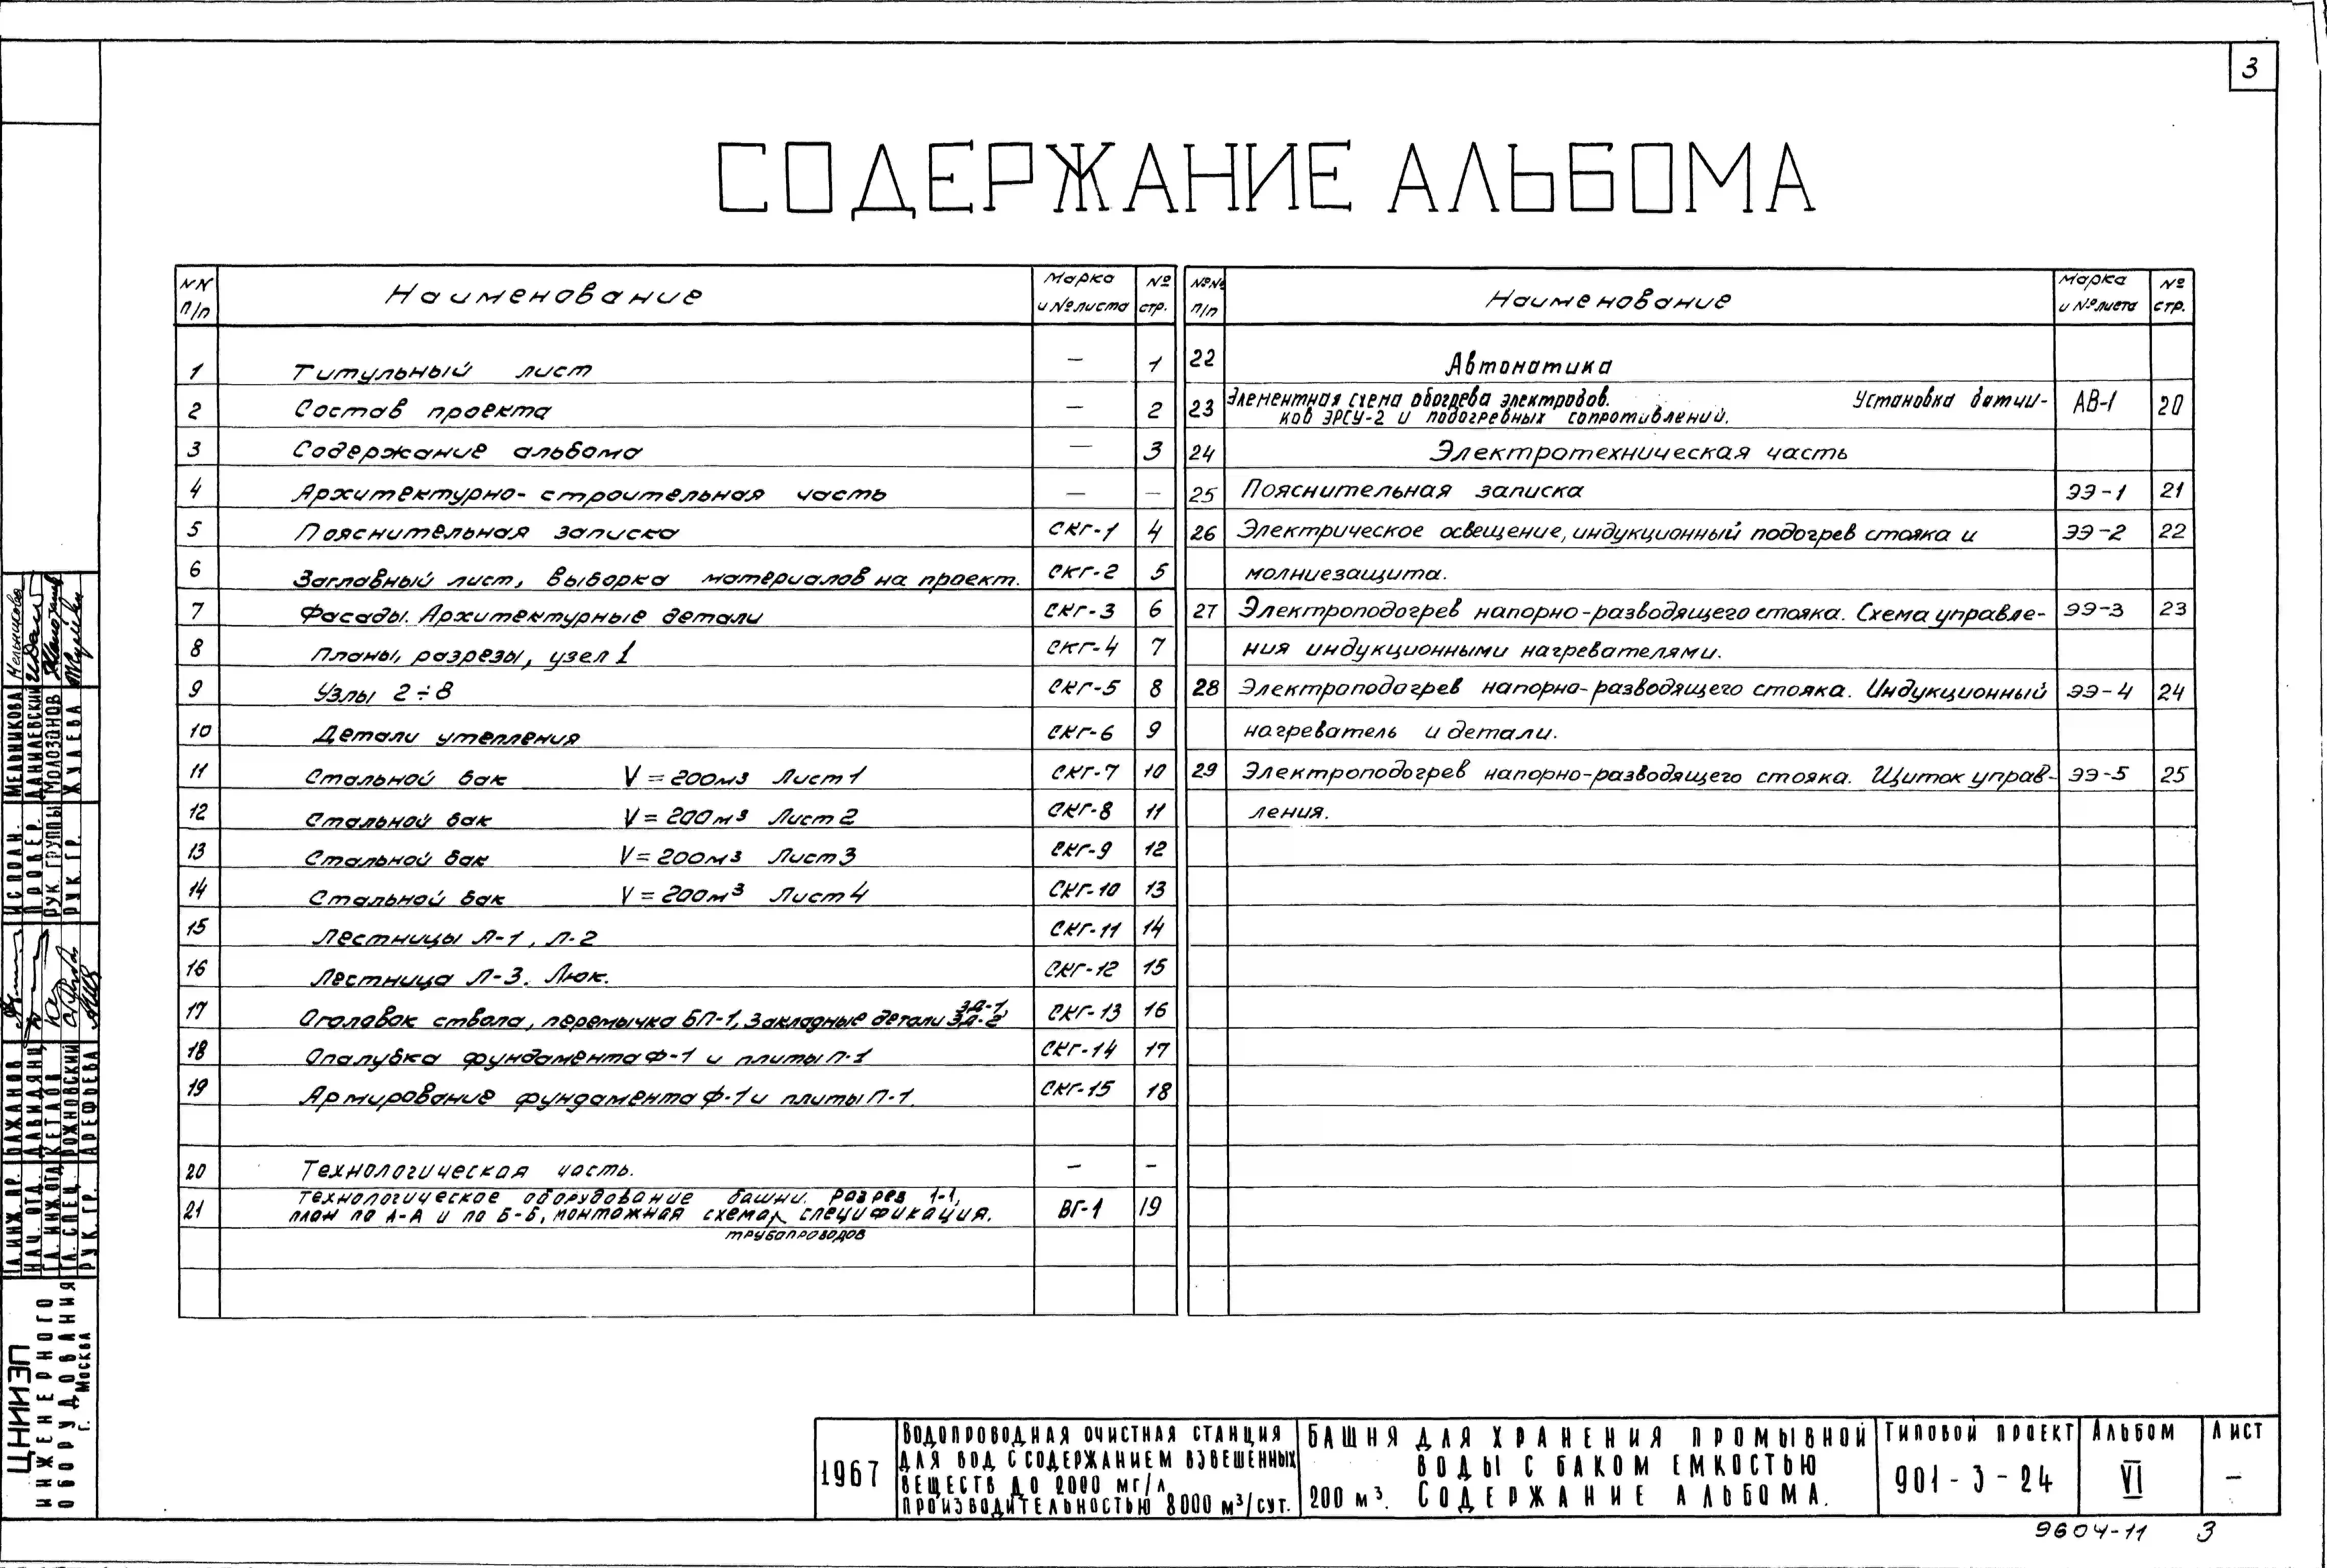 3
СОДЕРЖАНИЕ АЛЬБОМА
NN п/п Наименование Марка и № листа № стр.
1 Титульный лист — 1
2 Состав проекта — 2
3 Содержание альбома — 3
4 Архитектурно-строительная часть — —
5 Пояснительная записка СКГ-1 4
6 Заглавный лист, выборка материалов на проект. СКГ-2 5
7 Фасады. Архитектурные детали СКГ-3 6
8 Планы, разрезы, узел 1 СКГ-4 7
9 Узлы 2÷8 СКГ-5 8
10 Детали утепления СКГ-6 9
11 Стальной бак V=200м3 Лист 1 СКГ-7 10
12 Стальной бак V=200м3 Лист 2 СКГ-8 11
13 Стальной бак V=200м3 Лист 3 СКГ-9 12
14 Стальной бак V=200м3 Лист 4 СКГ-10 13
15 Лестницы Л-1, Л-2 СКГ-11 14
16 Лестница Л-3. Люк. СКГ-12 15
17 Оголовок ствола, перемычка БП-1, Закладные детали ЗД-1, ЗД-2 СКГ-13 16
18 Опалубка фундамента Ф-1 и плиты П-1 СКГ-14 17
19 Армирование фундамента Ф-1 и плиты П-1. СКГ-15 18
20 Технологическая часть. — -
21 Технологическое оборудование башни. Разрез 1-1,
план по А-А и по Б-Б, монтажная схема спецификация. ВГ-1 19
трубопроводов
№№ п/п Наименование Марка и № листа № стр.
22 Автоматика
23 Элементная схема обогрева электродов. Установка датчи-
ков ЭРСУ-2 и подогревных сопротивлений. АВ-1 20
24 Электротехническая часть
25 Пояснительная записка ЭЭ-1 21
26 Электрическое освещение, индукционный подогрев стояка и ЭЭ-2 22
молниезащита.
27 Электроподогрев напорно-разводящего стояка. Схема управле- ЭЭ-3 23
ния индукционными нагревателями.
28 Электроподогрев напорно-разводящего стояка. Индукционный ЭЭ-4 24
нагреватель и детали.
29 Электроподогрев напорно-разводящего стояка. Щиток управ- ЭЭ-5 25
ления.
ИСПОЛН. МЕЛЬНИКОВА
ПРОВЕР. ДАНИЛЕВСКИЙ
РУК. ГРУППЫ МОЛОЗАНОВ
РУК. ГР. ЖУАЕВА
ГЛ. ИНЖ. ПР. ПАЖАНОВ
НАЧ. ОТД. ДАВИДЯНЦ
ГЛ. ИНЖ. ОТД. КЕТАОВ
ГЛ. СПЕЦ. РОЖНОВСКИЙ
РУК. ГР. АРЕФЬЕВА
ЦНИИЭП
ИНЖЕНЕРНОГО
ОБОРУДОВАНИЯ
Г. МОСКВА
1967
ВОДОПРОВОДНАЯ ОЧИСТНАЯ СТАНЦИЯ
ДЛЯ ВОД С СОДЕРЖАНИЕМ ВЗВЕШЕННЫХ
ВЕЩЕСТВ ДО 2000 МГ/Л
ПРОИЗВОДИТЕЛЬНОСТЬЮ 8000 М3/СУТ.
БАШНЯ ДЛЯ ХРАНЕНИЯ ПРОМЫВНОЙ
ВОДЫ С БАКОМ ЕМКОСТЬЮ
200 М3. СОДЕРЖАНИЕ АЛЬБОМА.
ТИПОВОЙ ПРОЕКТ
901-3-24
АЛЬБОМ
VI
ЛИСТ
—
9604-11 3